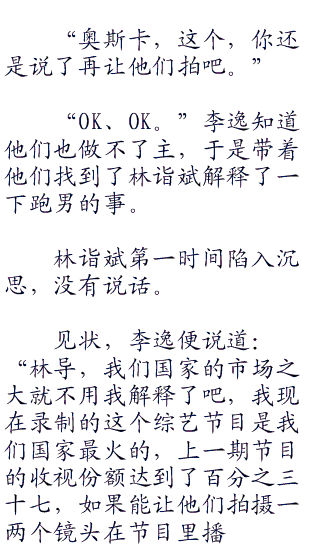 “奥斯卡，这个，你还
是说了再让他们拍吧。”
“OK、OK。”李逸知道
他们也做不了主，于是带着
他们找到了林诣斌解释了一
下跑男的事。
林诣斌第一时间陷入沉
思，没有说话。
见状，李逸便说道：
“林导，我们国家的市场之
大就不用我解释了吧，我现
在录制的这个综艺节目是我
们国家最火的，上一期节目
的收视份额达到了百分之三
十七，如果能让他们拍摄一
两个镜头在节目里播